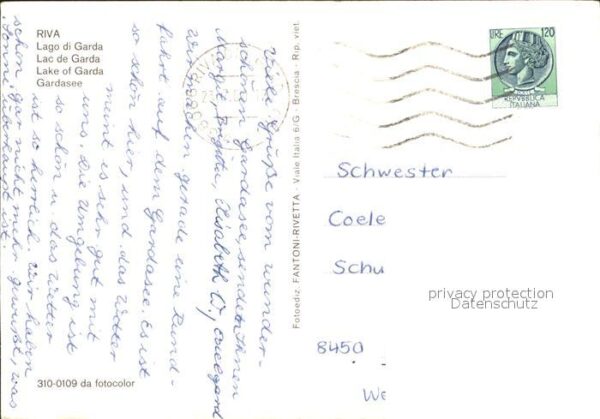 RIVA
Lago di Garda
Lac de Garde
Lake of Garda
Gardasee
Viele Grüße vom wunder-
schönen Gardasee, senden Ihnen
Margit, Brigitte, Elisabeth W.,
Wir machen gerade eine Rund-
fahrt auf dem Gardasee. Es ist
so schön hier, und das Wetter
meint es sehr gut mit
uns. Die Umgebung ist
so schön u. das Wetter
ist so herrlich. Wir haben
schon gar nicht mehr gewußt, was
Sonne überhaupt ist.
310-0109 da fotocolor
Fotoediz. FANTONI-RIVETTA - Viale Italia 6/G - Brescia - Rip. viet.
RIVA
LIRE 120
REPVBBLICA
ITALIANA
Schwester
Coele
Schu
privacy protection
Datenschutz
8450
We